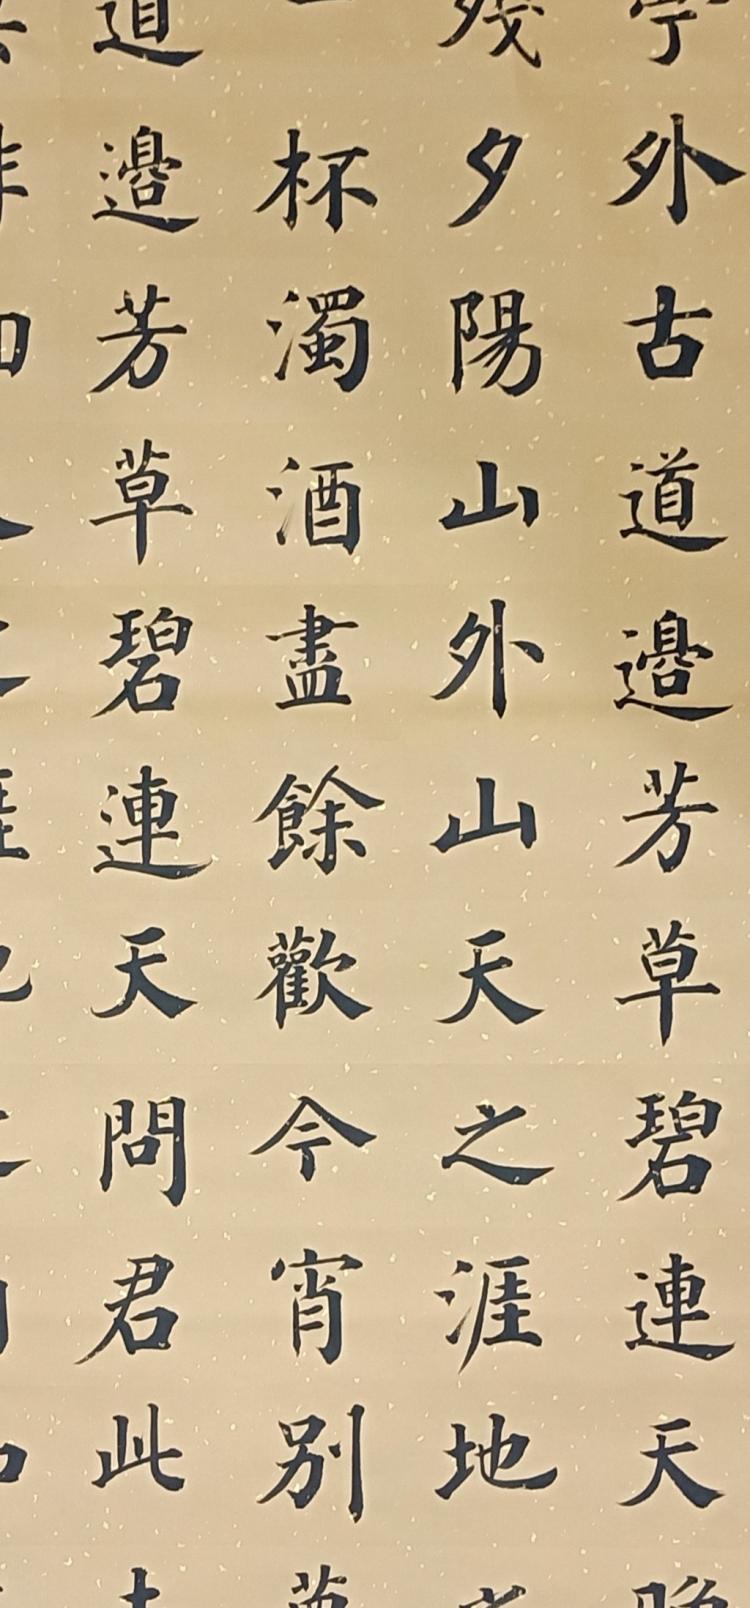 外古道邊芳草碧連天
夕陽山外山天之涯地
杯濁酒盡餘歡今宵別
道邊芳草碧連天問君此